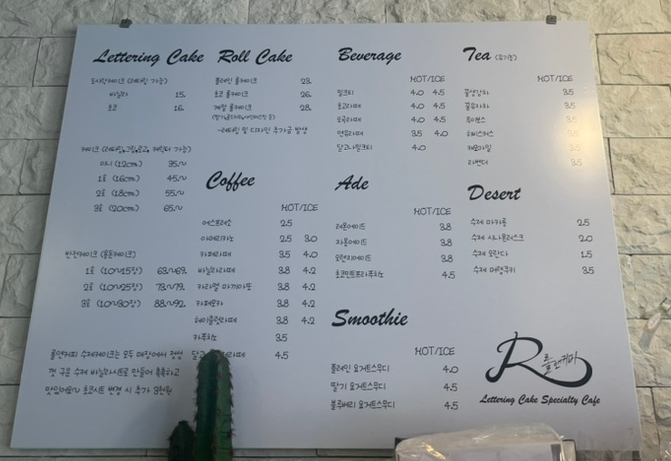 Lettering Cake
도시락케이크 (레터링 가능)
바닐라 15.
초코 16.
케이크 (레터링, 그림, 로고, 캐릭터 가능)
미니 (12cm) 35.~
1호 (16cm) 45.~
2호 (18cm) 55.~
3호 (20cm) 65.~
반전케이크 (용돈케이크)
1호 (10~15장) 63.~69.
2호 (10~25장) 73.~79.
3호 (10~30장) 88.~92.
롤앤커피 수제케이크는 모두 매장에서 정성
껏 구운 수제 바닐라시트로 만들어 촉촉하고
맛있어요~ 초코시트 변경 시 추가
Roll Cake
플레인 롤케이크 23.
초코 롤케이크 26.
계절 롤케이크 28.
~레터링 및 디자인 추가금 발생
Coffee
HOT/ICE
에스프레소 2.5
아메리카노 2.5 3.0
카페라떼 3.5 4.0
바닐라라떼 3.8 4.2
카라멜 마끼아또 3.8 4.2
카페모카 3.8 4.2
헤이즐넛라떼 3.8 4.2
카푸치노 3.5
달고 라떼 4.5
Beverage
HOT/ICE
밀크티 4.0 4.5
초코라떼 4.0 4.5
4.0 4.5
연유라떼 3.5 4.0
달고나밀크티 4.0
Ade
HOT/ICE
레몬에이드 3.8
자몽에이드 3.8
오렌지에이드 3.8
초코민트프라푸치노 4.5
Smoothie
HOT/ICE
플레인 요거트스무디 4.0
딸기 요거트스무디 4.5
블루베리 요거트스무디 4.5
Tea (유기농)
HOT/ICE
꿀생강차 3.5
꿀유자차 3.5
루이보스 3.5
히비스커스 3.5
캐모마일 3.5
라벤더 3.5
Desert
수제 마카롱 2.5
수제 시나몬러스크 2.0
수제 오란다 1.5
수제 머랭쿠키 3.5
R 롤앤커피
Lettering Cake Specialty Cafe